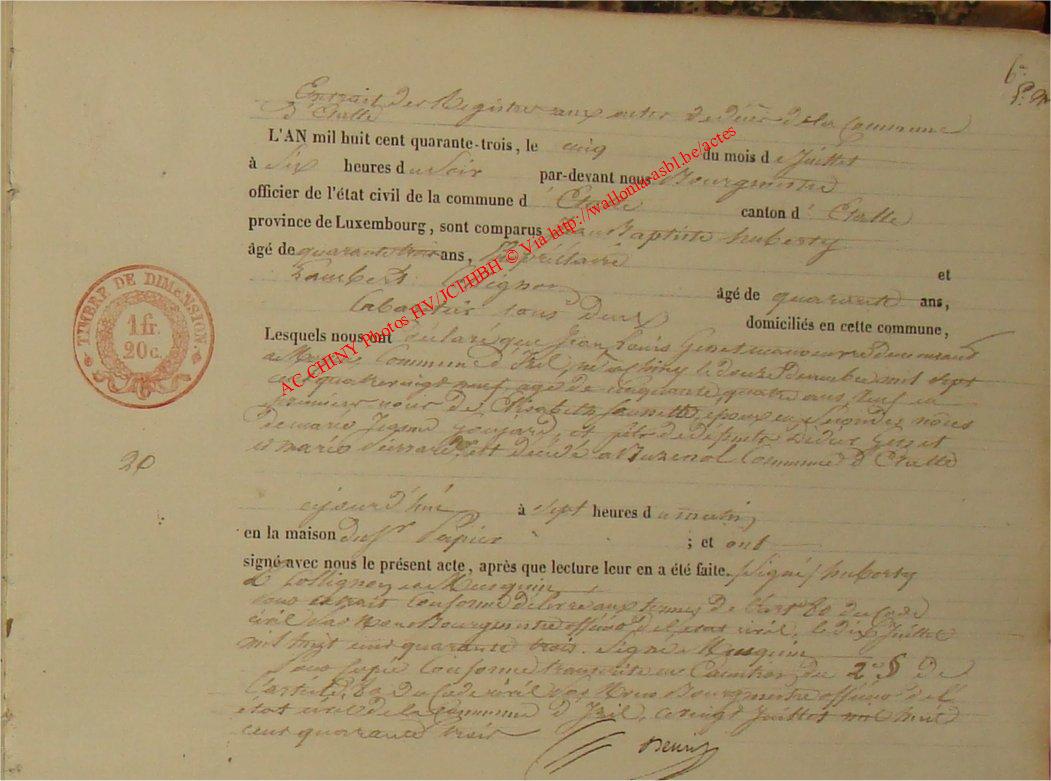 6e
Extrait des Registres aux actes de décès de la Commune
d'Etalle
L'AN mil huit cent quarante-trois, le cinq du mois de Juillet
à six heures du soir par-devant nous Bourgmestre
officier de l'état civil de la commune d'Etalle canton d'Etalle
province de Luxembourg, sont comparus Jean Baptiste huberty
âgé de quarante trois ans, Propriétaire et
Lambert âgé de quarante ans,
tous deux domiciliés en cette commune,
Lesquels nous ont déclaré que Jean Louis manoeuvre demeurant
à Commune d'Izel, né à Chiny le douze décembre mil sept
cent quatre vingt neuf, âgé de cinquante quatre ans, veuf en
premières noces de Elisabeth époux en secondes noces
de marie et fils de défunts
et marie est décédé à Buzenol Commune d'Etalle
20
aujourd'hui à sept heures du matin
en la maison du Sr Papier ; et ont
signé avec nous le présent acte, après que lecture leur en a été faite. signé huberty
L. Collignon et Musquin
Pour extrait conforme délivré aux termes de l'art 80 du Code
civil par Nous Bourgmestre officier de l'état civil, le dix Juillet
mil huit cent quarante trois. Signé Musquin
Pour copie conforme transcrite en exécution du 2e § de
l'article 80 du Code civil par Nous Bourgmestre officier de l'
état civil de la Commune d'Izel, ce vingt Juillet mil huit
cent quarante trois
TIMBRE DE DIMENSION
1 fr.
20 c.
AC CHINY Photos HV/JCT/HBH © Via http://wallonia-asbl.be/actes